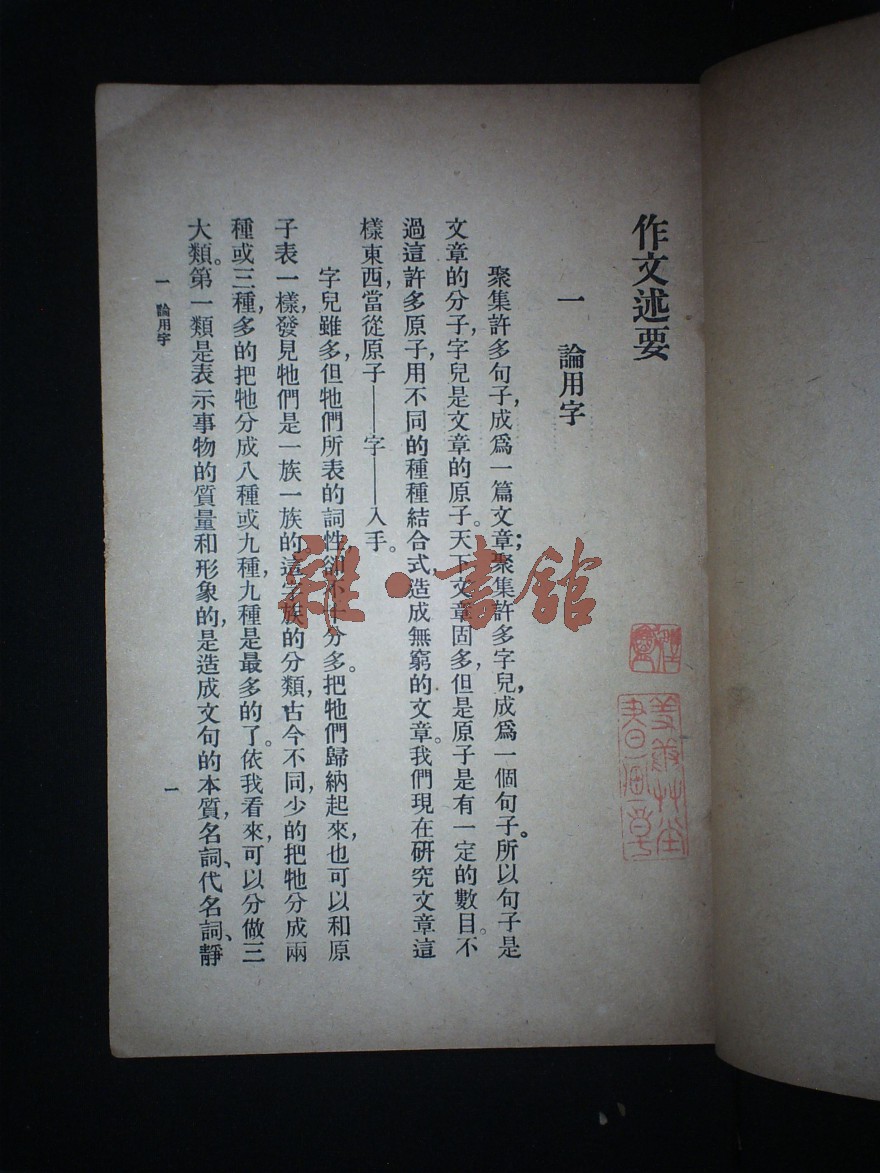 作文述要
一　論用字
聚集許多句子，成爲一篇文章；聚集許多字兒，成爲一個句子。所以句子是
文章的分子，字兒是文章的原子。天下文章固多，但是原子是有一定的數目。不
過這許多原子，用不同的種種結合式，造成無窮的文章。我們現在研究文章這
樣東西，當從原子——字——入手。
字兒雖多，但牠們所表的詞性，卻不十分多。把牠們歸納起來，也可以和原
子表一樣，發見牠們是一族一族的。這字族的分類，古今不同，少的把牠分成兩
種或三種，多的把牠分成八種或九種，九種是最多的了。依我看來，可以分做三
大類。第一類是表示事物的質量和形象的，是造成文句的本質，名詞、代名詞、靜
一　論用字
一
雜·書館